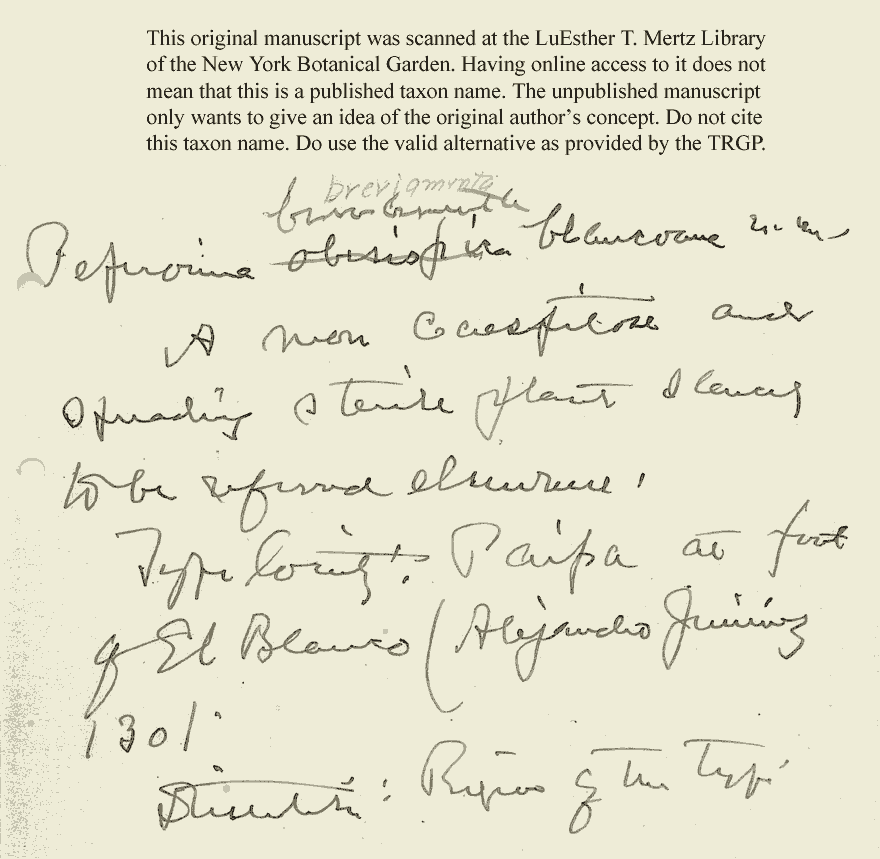 This original manuscript was scanned at the LuEsther T. Mertz Library
of the New York Botanical Garden. Having online access to it does not
mean that this is a published taxon name. The unpublished manuscript
only wants to give an idea of the original author's concept. Do not cite
this taxon name. Do use the valid alternative as provided by the TRGP.
Peperomia blancoana
A non caespitose and
spreading sterile plant
to be referred elsewhere.
Type locality: Paipa at foot
of El Blanco (Alejandro Jiménez
1301.
Distribution: Region of the type